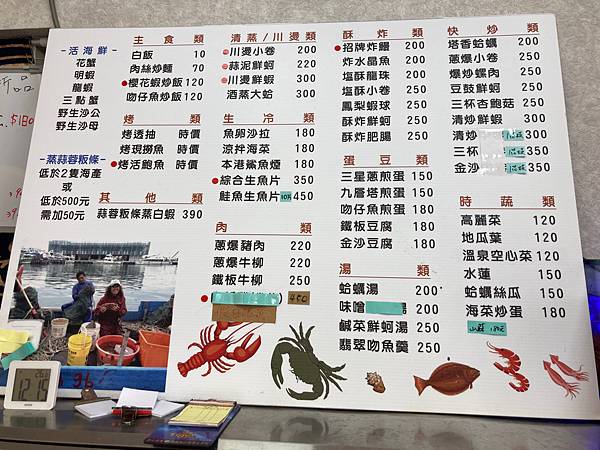 -活海鮮-
花蟹
明蝦
龍蝦
三點蟹
野生沙公
野生沙母
-蒸蒜蓉粄條-
低於2隻海產
或
低於500元
需加50元
主食類
白飯 10
肉絲炒麵 70
櫻花蝦炒飯 120
吻仔魚炒飯 120
烤類
烤透抽 時價
烤現撈魚 時價
烤活鮑魚 時價
其他類
蒜蓉粄條蒸白蝦 390
清蒸/川燙類
川燙小卷 200
蒜泥鮮蚵 220
川燙鮮蝦 300
酒蒸大蛤 200
生冷類
魚卵沙拉 180
涼拌海菜 180
本港鯊魚煙 180
綜合生魚片 350
鮭魚生魚片 10片 450
肉類
蔥爆豬肉 220
蔥爆牛柳 220
鐵板牛柳 250
450
酥炸類
招牌炸鰻 200
炸水晶魚 200
塩酥龍珠 200
塩酥小卷 200
鳳梨蝦球 250
酥炸鮮蚵 250
酥炸肥腸 250
蛋豆類
三星蔥煎蛋 150
九層塔煎蛋 150
吻仔魚煎蛋 180
鐵板豆腐 180
金沙豆腐 180
湯類
蛤蠣湯 200
味噌 200
鹹菜鮮蚵湯 250
翡翠吻魚羹 250
快炒類
塔香蛤蠣 200
蔥爆小卷 200
爆炒螺肉 250
豆鼓鮮蚵 250
三杯杏鮑菇 250
清炒鮮蝦 300
清炒 300
三杯 350
金沙 350
時蔬類
高麗菜 120
地瓜葉 120
溫泉空心菜 120
水蓮 150
蛤蠣絲瓜 150
海菜炒蛋 180
山蘇 180元
$180
12:15